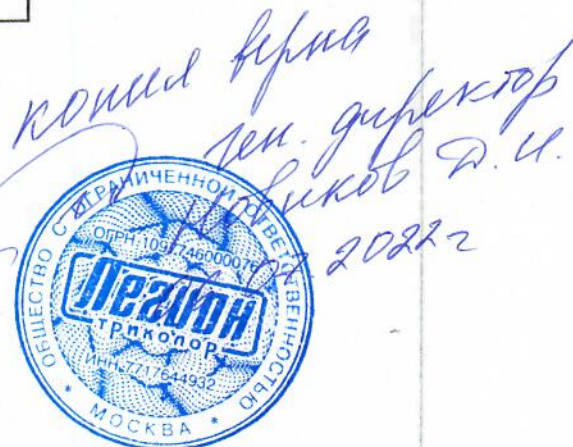 копия верна
ген. директор
Новиков Д. И.
07. 2022г
ОБЩЕСТВО С ОГРАНИЧЕННОЙ ОТВЕТСТВЕННОСТЬЮ
ОГРН
Легион
триколор
ИНН 7717644932
* МОСКВА *